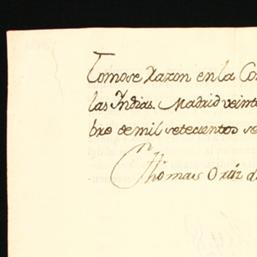 Tomose Razon en la Co
las Indias. Madrid veint
bre de mil setecientos se
Thomas Ortiz d